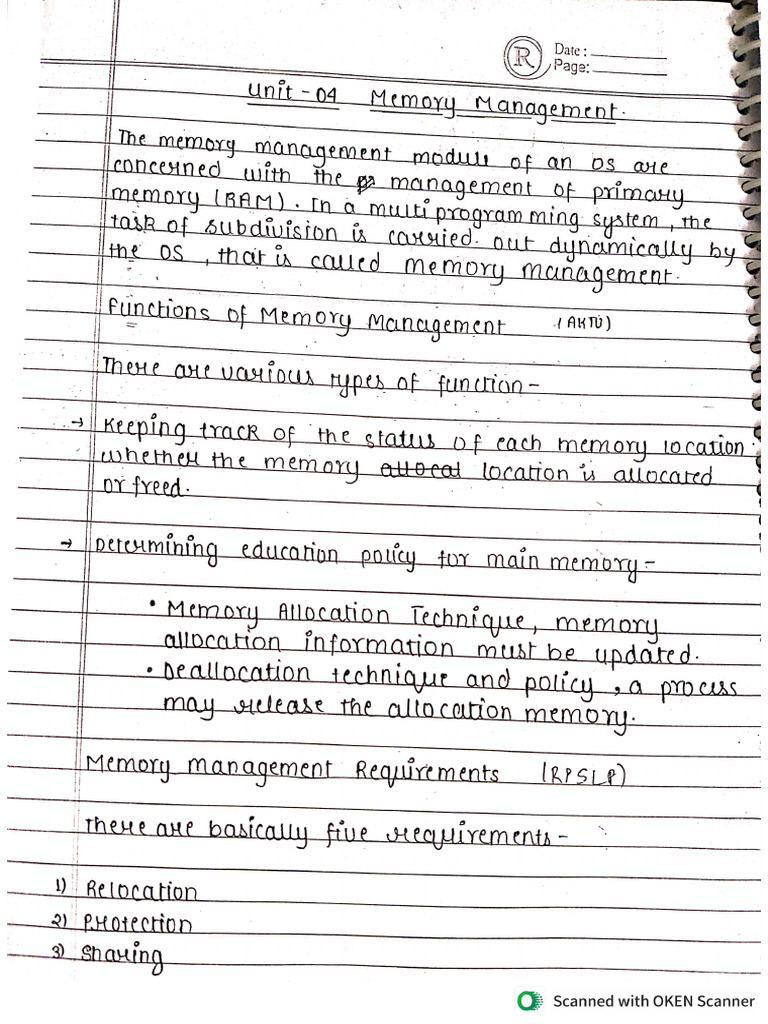 R Date :
Page:
Unit - 04 Memory Management.
The memory management module of an OS are
concerned with the management of primary
memory (RAM). In a multiprogramming system, the
task of subdivision is carried out dynamically by
the OS, that is called memory management.
Functions of Memory Management (AKTU)
There are various types of function -
→ Keeping track of the status of each memory location
whether the memory allocal location is allocated
or freed.
→ Determining education policy for main memory -
• Memory Allocation Technique, memory
allocation information must be updated.
• Deallocation technique and policy, a process
may release the allocation memory.
Memory management Requirements (RPSLP)
There are basically five requirements -
1) Relocation
2) Protection
3) Sharing
Scanned with OKEN Scanner